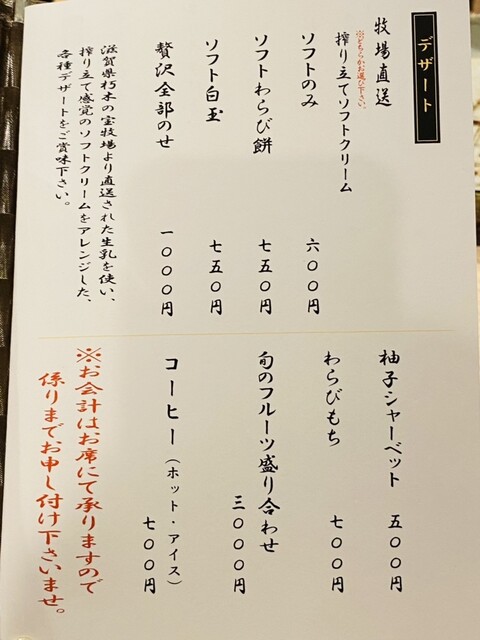 デザート
牧場直送
搾り立てソフトクリーム
※どちらかお選び下さい。
ソフトのみ 六〇〇円
ソフトわらび餅 七五〇円
ソフト白玉 七五〇円
贅沢全部のせ 一〇〇〇円
滋賀県朽木の宝牧場より直送された生乳を使い、
搾り立て感覚のソフトクリームをアレンジした、
各種デザートをご賞味下さい。
柚子シャーベット 五〇〇円
わらびもち 七〇〇円
旬のフルーツ盛り合わせ 三〇〇〇円
コーヒー（ホット・アイス） 七〇〇円
※お会計はお席にて承りますので
係りまでお申し付け下さいませ。